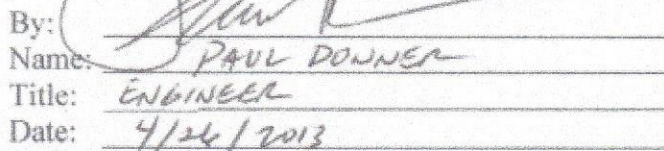 By:
Name: PAUL DONNER
Title: ENGINEER
Date: 4/26/2013